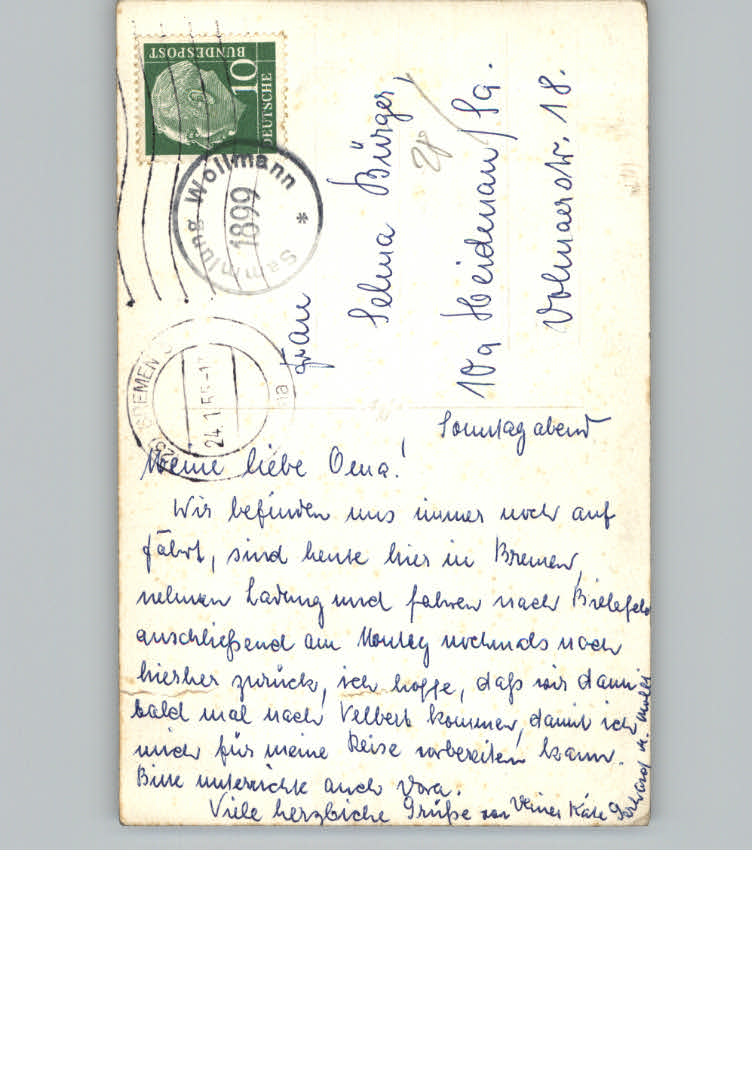 DEUTSCHE
BUNDESPOST
10
Sammlung Wollmann
1899
*
BREMEN
24.1.5
Frau
Selma Bürger,
10a Heidenau/Sa.
Volmaerstr. 18.
Sonntag abend
Meine liebe Oma!
Wir befinden uns immer noch auf
Fahrt, sind heute hier in Bremen,
nehmen Ladung und fahren nach Bielefeld
anschließend am Montag nochmals nach
hierher zurück, ich hoffe, daß wir dann
bald mal nach Velbert kommen, damit ich
mich für meine Reise vorbereiten kann.
Bitte unterrichte auch Vera.
Viele herzliche Grüße von Deiner Käte
Gerhard u.